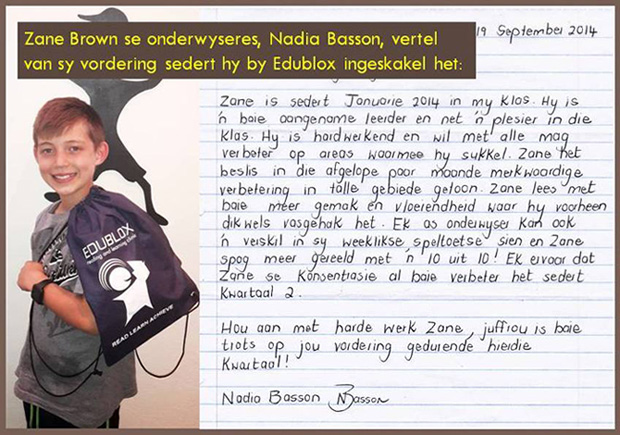 Zane Brown se onderwyseres, Nadia Basson, vertel
van sy vordering sedert hy by Edublox ingeskakel het:
19 September 2014
Zane is sedert Januarie 2014 in my klas. Hy is
'n baie aangename leerder en net 'n plesier in die
klas. Hy is hardwerkend en wil met alle mag
verbeter op areas waarmee hy sukkel. Zane het
beslis in die afgelope paar maande merkwaardige
verbetering in talle gebiede getoon. Zane lees met
baie meer gemak en vloeiendheid waar hy voorheen
dikwels vasgehak het. Ek as onderwyser kan ook
'n verskil in sy weeklikse speltoetse sien en Zane
spog meer gereeld met 'n 10 uit 10! Ek ervaar dat
Zane se konsentrasie al baie verbeter het sedert
Kwartaal 2.
Hou aan met harde werk Zane, juffrou is baie
trots op jou vordering gedurende hierdie
Kwartaal!
Nadia Basson NBasson
EDUBLOX
reading and learning clinic
READ LEARN ACHIEVE